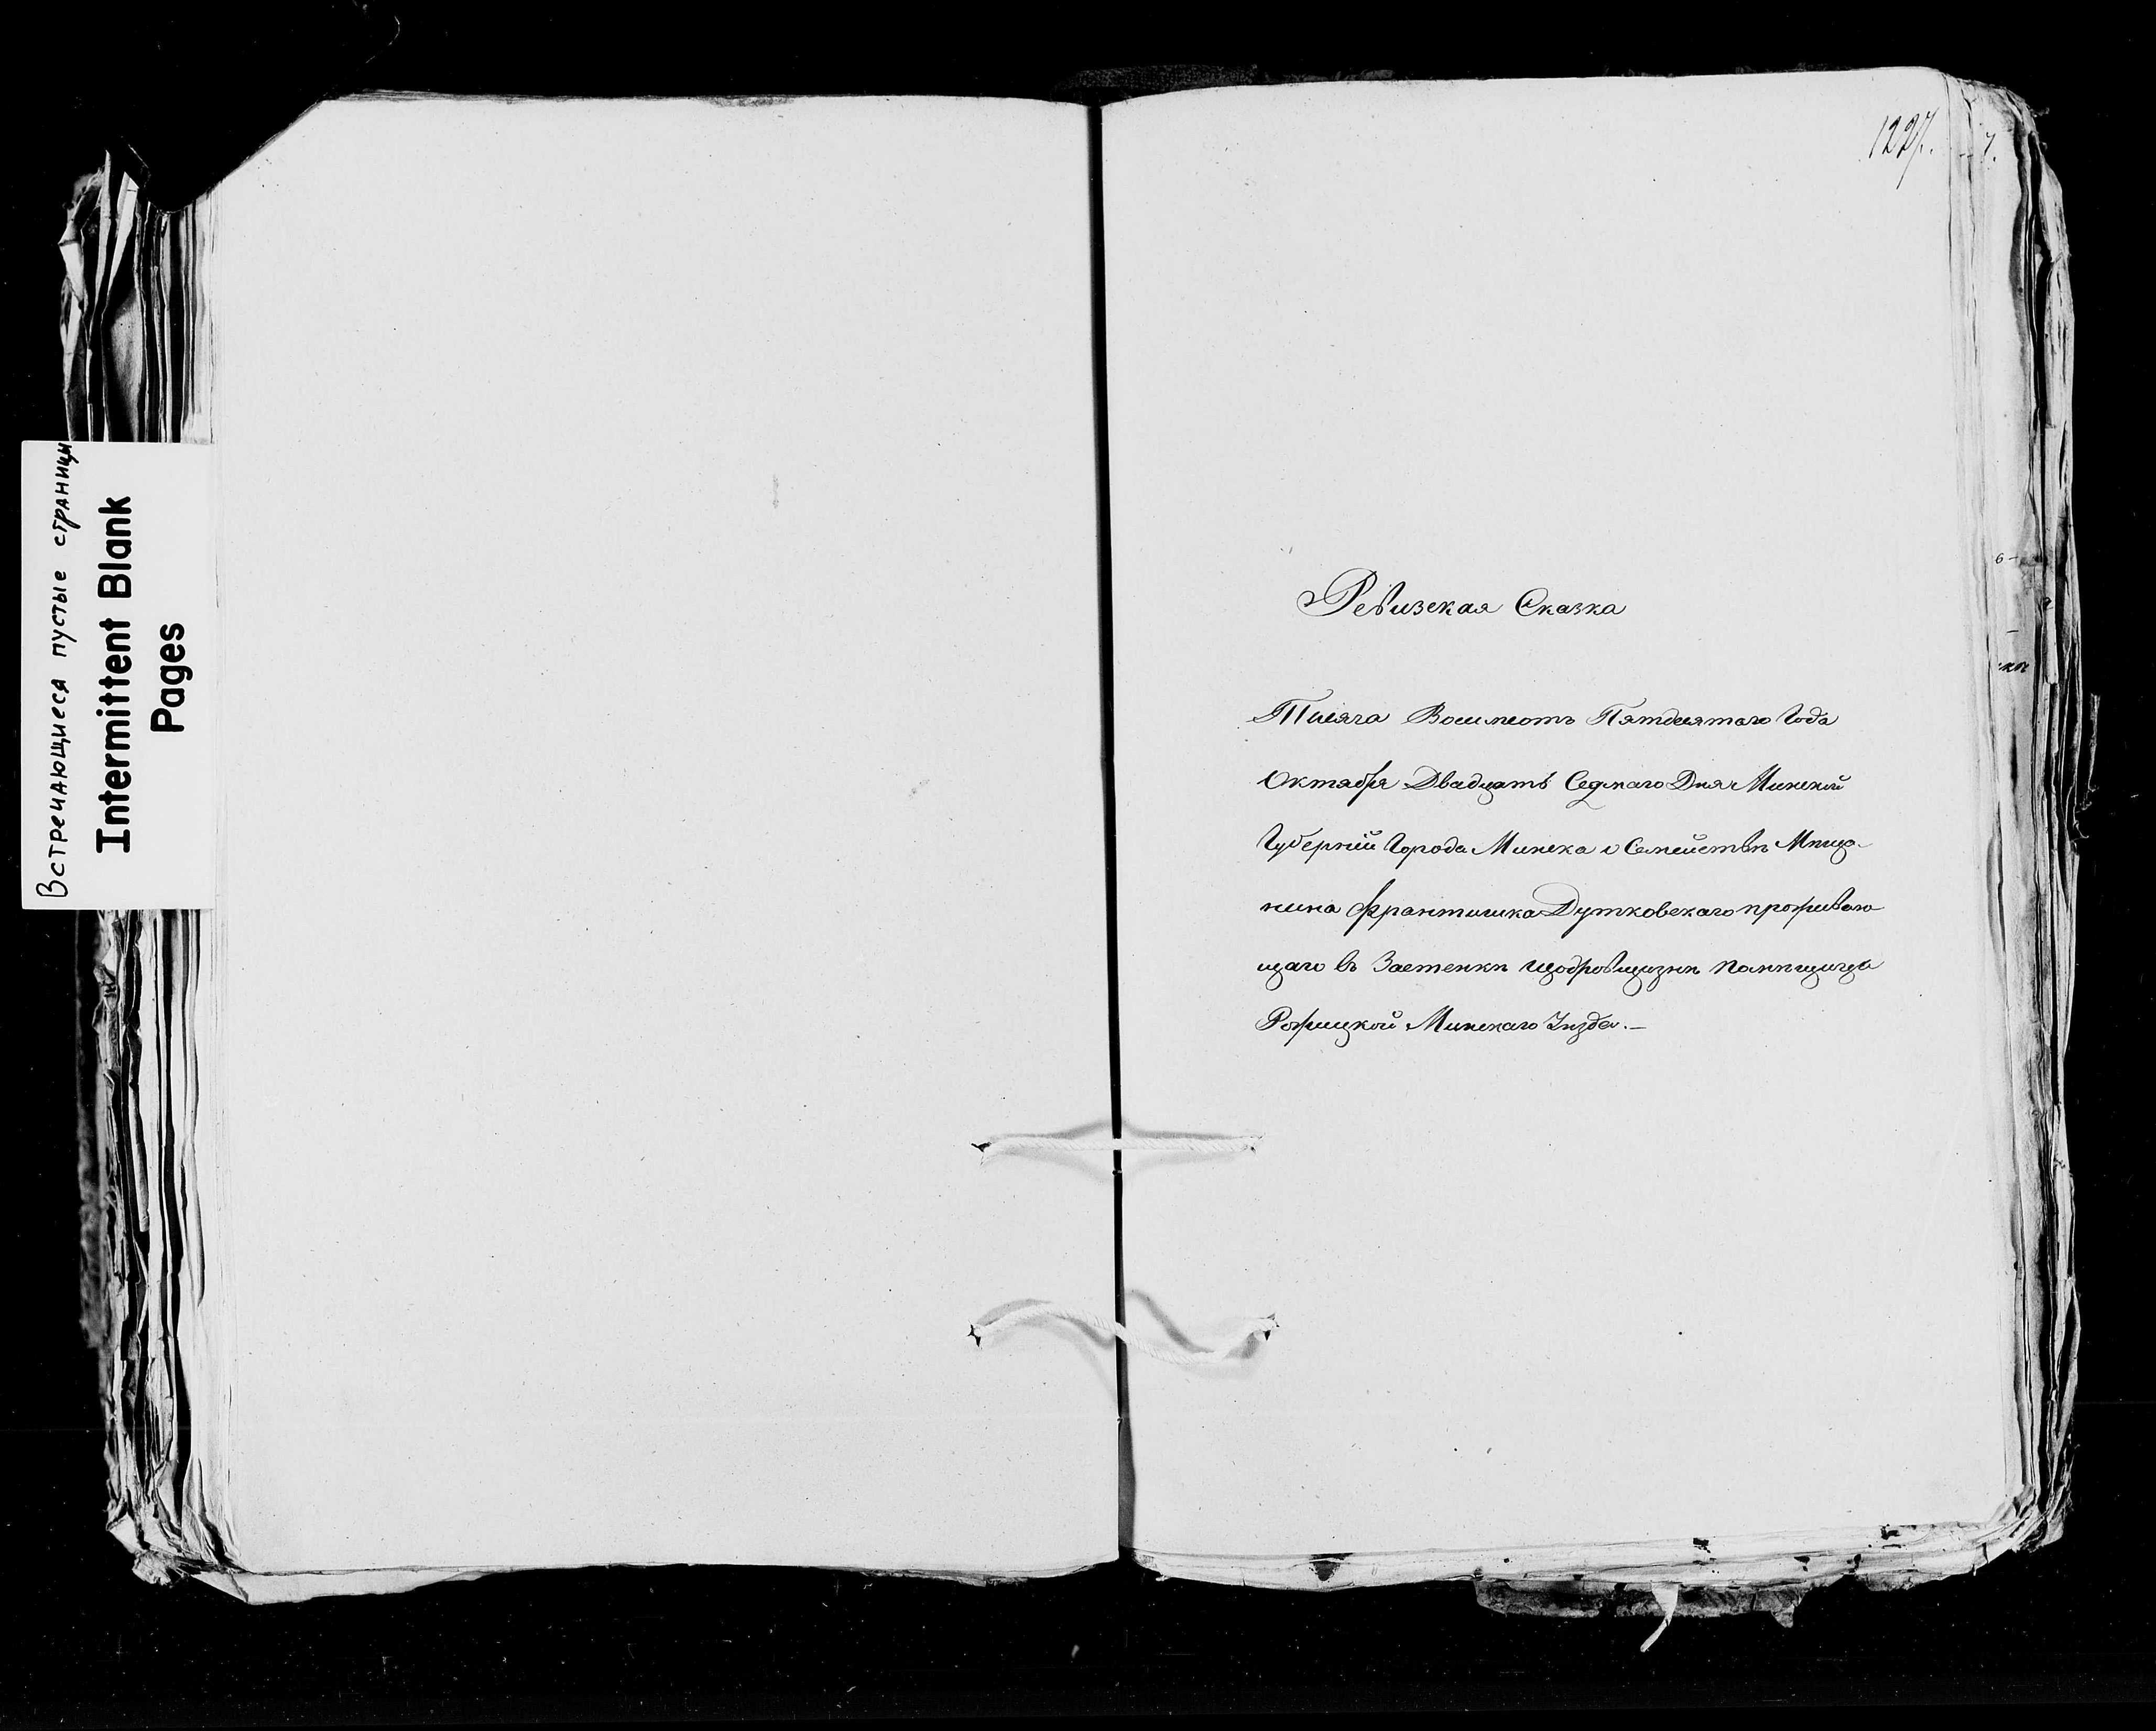 Встречающиеся пустые страницы
Intermittent Blank
Pages
1227.
7.
Ревизская Сказка
Тысяча Восимсотъ Пятдесятаго Года
Октября Двадцать Седмаго Дня Минской
Губерніи Города Минска о Семействѣ Мѣща-
нина Франтишка Дутковскаго проживаю
щаго въ Застенкѣ Щодровщизнѣ Помѣщицы
Минскаго Уѣзда.—